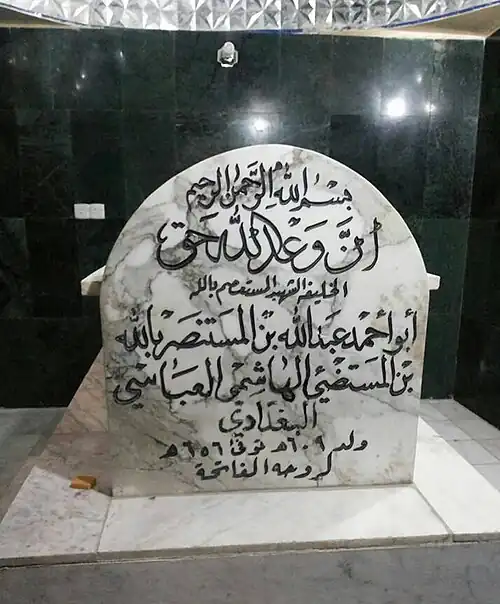 بِسْمِ اللهِ الرَّحْمٰنِ الرَّحِيمِ
اِنَّ وَعْدَ اللهِ حَق
الخليفه الشهيد المستعصم بالله
أبو أحمد عبدالله بن المستنصر بالله
بن المستضئ الهاشمي العباسي
البغدادي
ولد ٦٠٩هـ توفي ٦٥٦هـ
لروحه الفاتحة